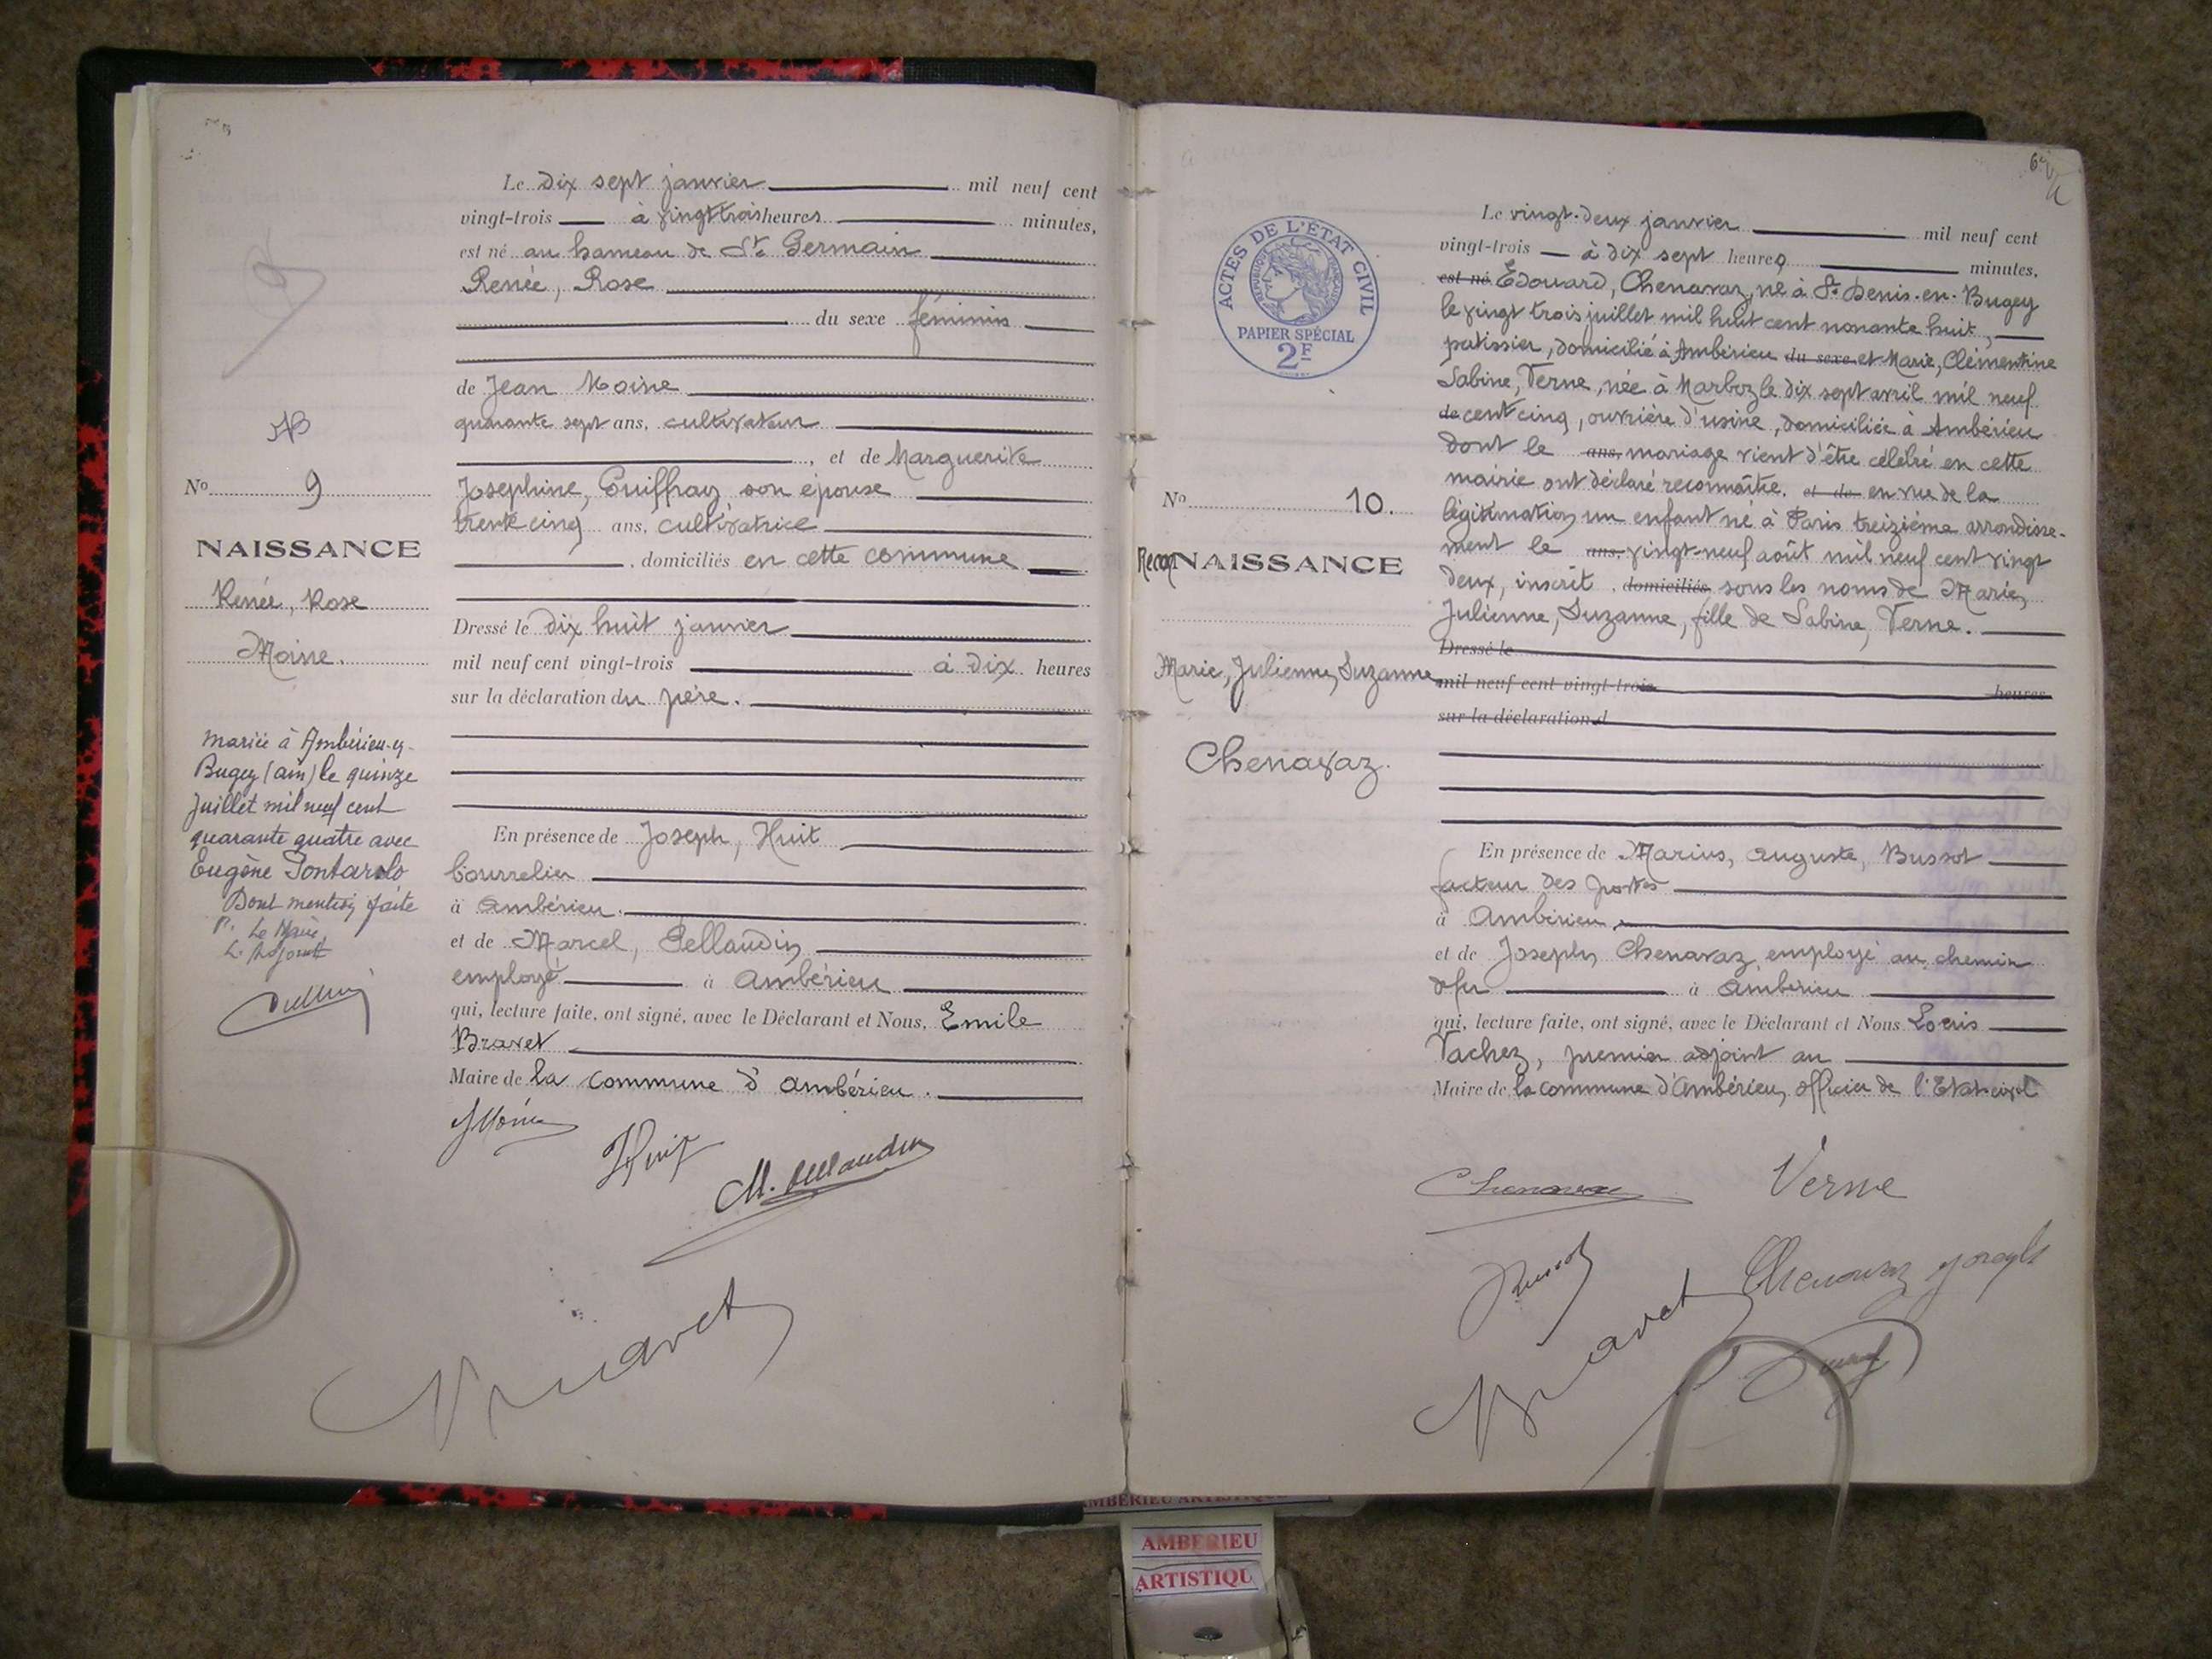 Le dix sept janvier mil neuf cent
vingt-trois à vingt trois heures minutes,
est né au hameau de St Germain
Renée, Rose
du sexe féminin
de Jean Moine
quarante sept ans, cultivateur
, et de Marguerite
Josephine, Guiffray son épouse
trente cinq ans, cultivatrice
, domiciliés en cette commune
Dressé le dix huit janvier
mil neuf cent vingt-trois à dix heures
sur la déclaration du père.
En présence de Joseph, Huit
bourrelier
à Ambérieu.
et de Marcel, Pellaudin
employé à Ambérieu
qui, lecture faite, ont signé, avec le Déclarant et Nous, Emile
Bravet
Maire de la commune d'Ambérieu.
JMoine
Huit
M. Pellaudin
Bravet
No 9
NAISSANCE
Renée, Rose
Moine.
Mariée à Ambérieu-en-
Bugey (ain) le quinze
juillet mil neuf cent
quarante quatre avec
Eugène Pontarolo
Dont mention faite
P. Le Maire,
L'Adjoint
ACTES DE L'ÉTAT CIVIL
RÉPUBLIQUE FRANÇAISE
PAPIER SPÉCIAL
2F
No 10.
ReconNAISSANCE
Marie, Julienne, Suzanne
Chenavaz.
Le vingt-deux janvier mil neuf cent
vingt-trois à dix sept heures minutes,
est né Edouard, Chenavaz, né à St Denis-en-Bugey
le vingt trois juillet mil huit cent nonante huit,
patissier, domicilié à Ambérieu du sexe et Marie, Clémentine
Sabine, Verne, née à Marboz le dix sept avril mil neuf
de cent cinq, ouvrière d'usine, domiciliée à Ambérieu
dont le ans, mariage vient d'être célébré en cette
mairie ont déclaré reconnaître. et de en vue de la
légitimation un enfant né à Paris treizième arrondisse-
ment le ans, vingt-neuf août mil neuf cent vingt
deux, inscrit , domiciliés sous les noms de Marie,
Julienne, Suzanne, fille de Sabine, Verne.
Dressé le
mil neuf cent vingt-trois heures
sur la déclaration d
En présence de Marius, Auguste, Bussot
facteur des postes
à Ambérieu
et de Joseph Chenavaz, employé au chemin
d fer à Ambérieu
qui, lecture faite, ont signé, avec le Déclarant et Nous Louis
Vachez, premier adjoint au
Maire de la commune d'Ambérieu, officier de l'Etat-civil
Chenavaz Verne
Bussot
Chenavaz Joseph
Bravet
AMBERIEU ARTISTIQUE
AMBERIEU
ARTISTIQU